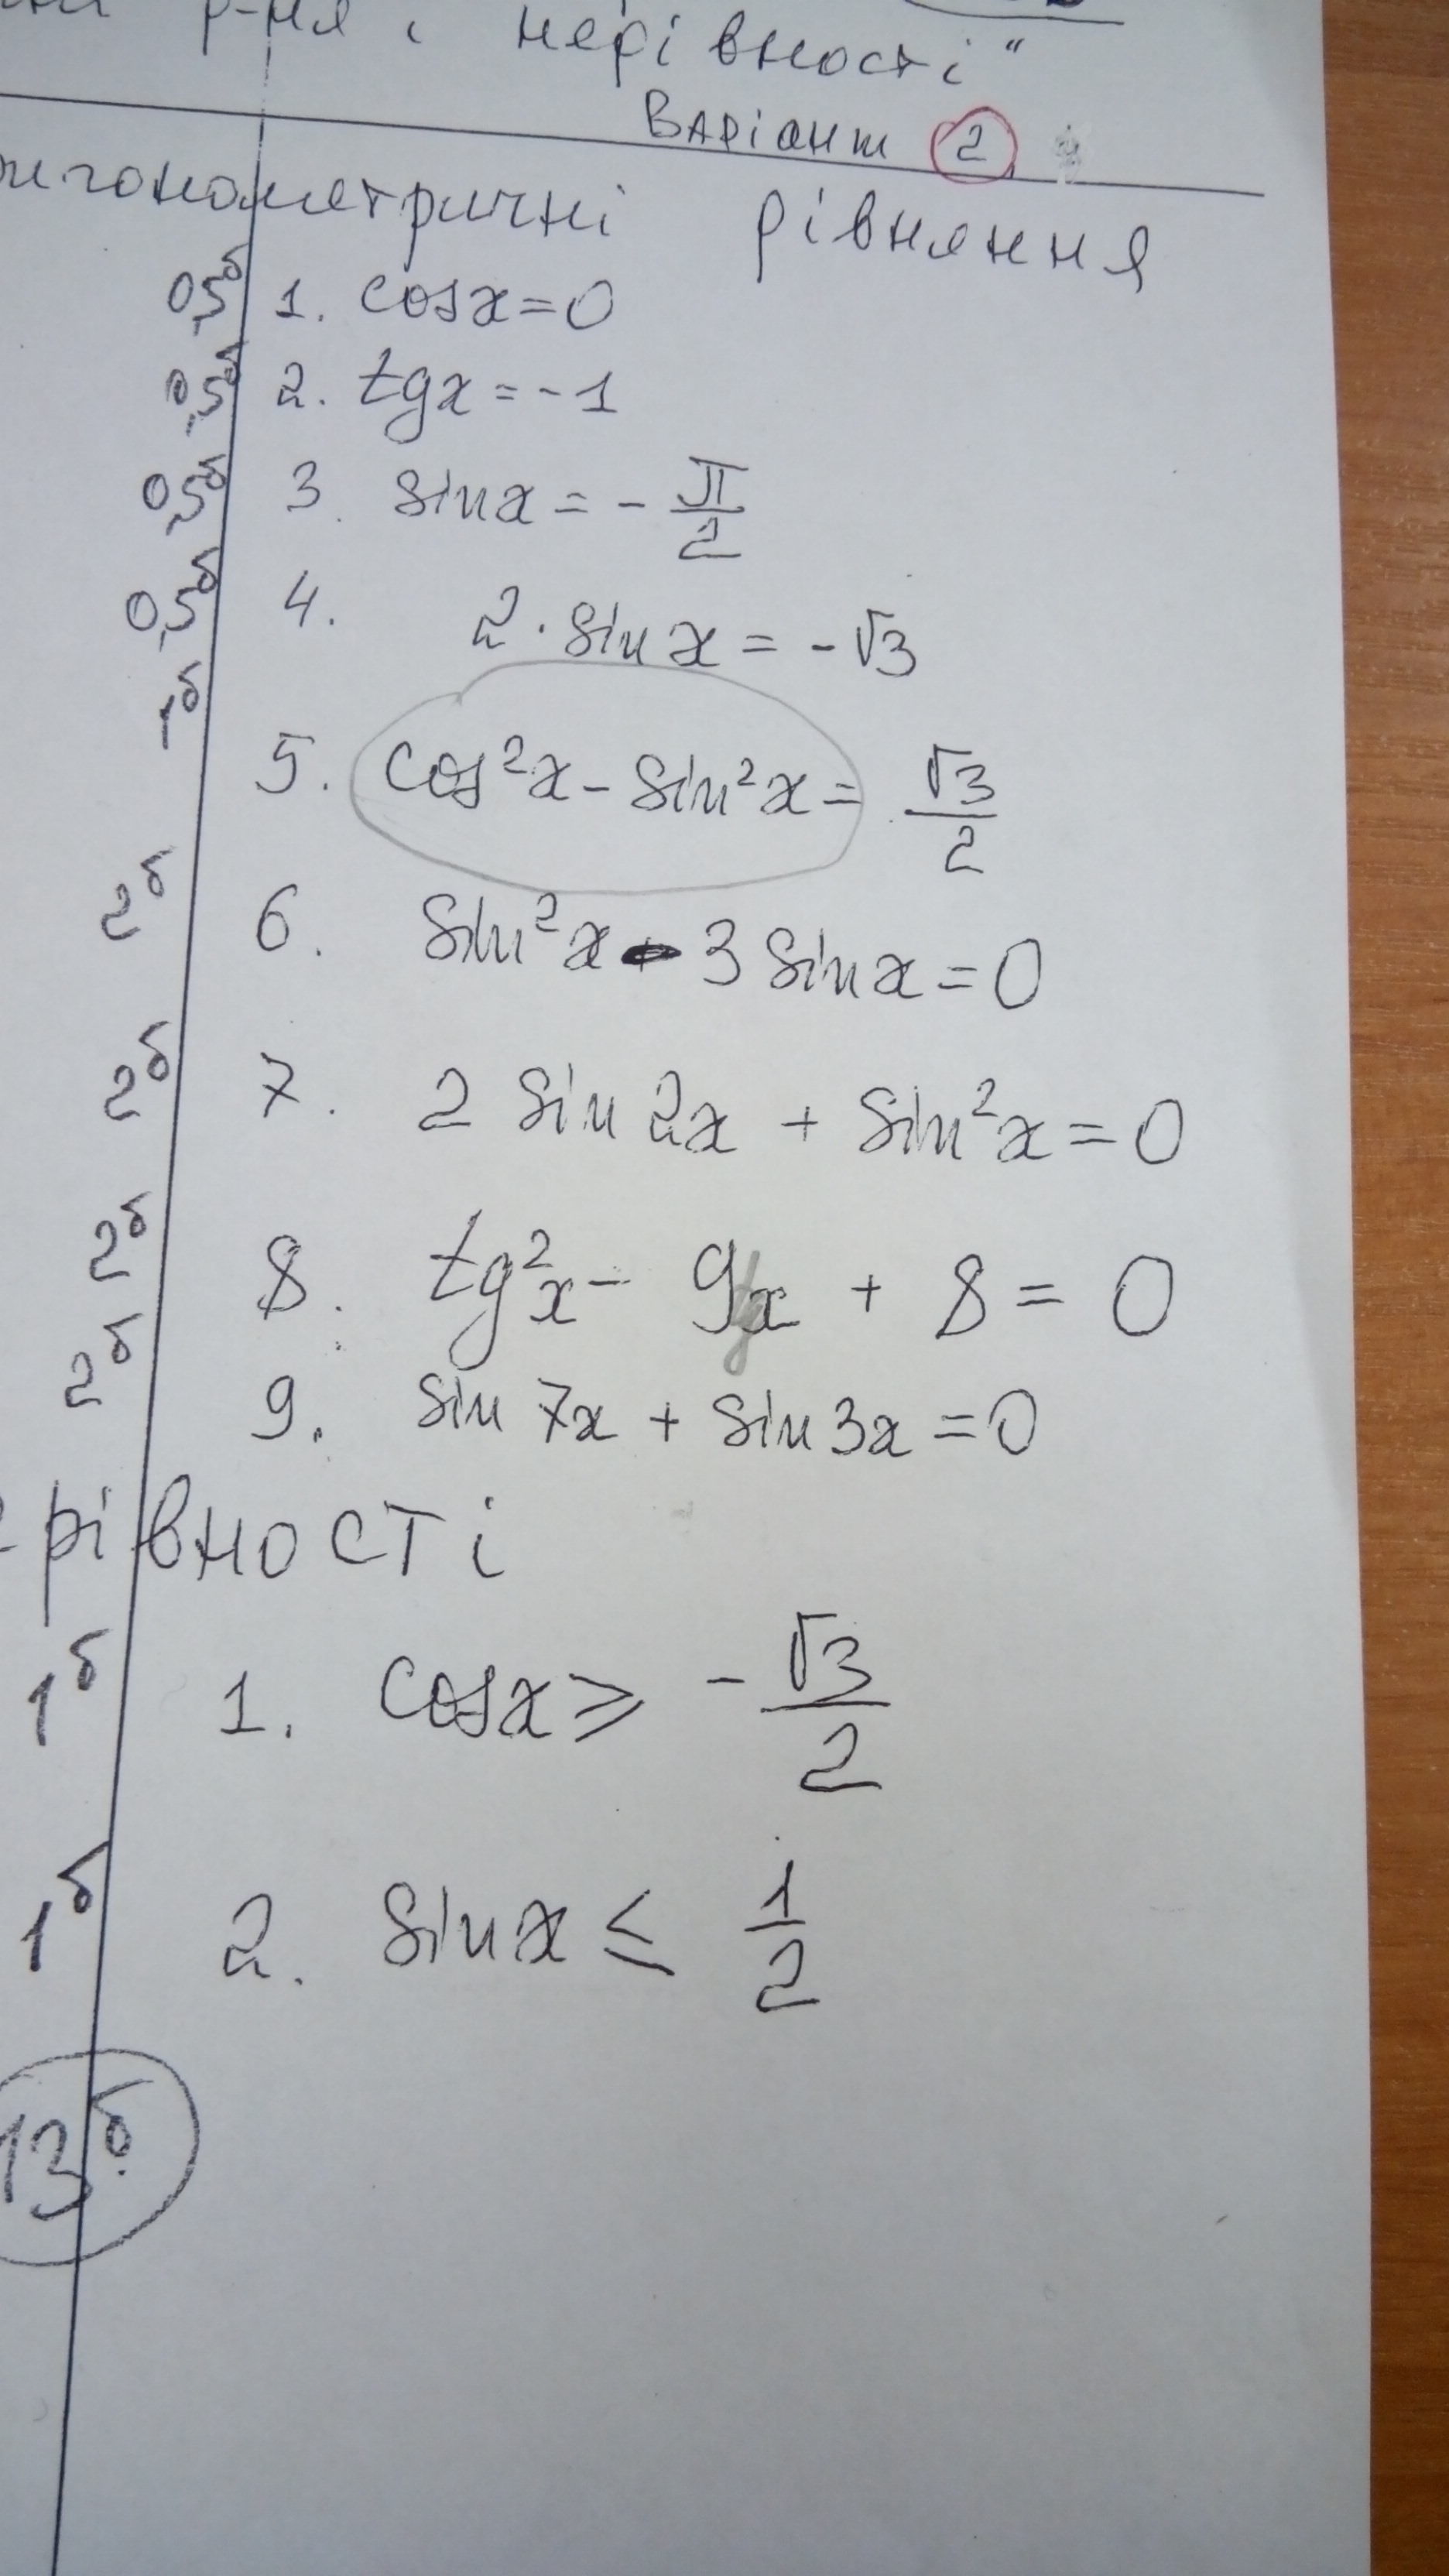 р-ня і нерівності"
Варіант 2
тригонометричні рівняння
0,5б 1. cosx=0
0,5б 2. tgx=-1
0,5б 3. sinx=-π/2
0,5б 4. 2·sinx=-√3
1б 5. cos²x-sin²x=√3/2
2б 6. sin²x-3sinx=0
2б 7. 2 sin2x + sin²x=0
2б 8. tg²x- 9tgx + 8=0
2б 9. sin7x + sin3x=0
рівності
1б 1. cosx≥ -√3/2
1б 2. sinx≤ 1/2
13б.